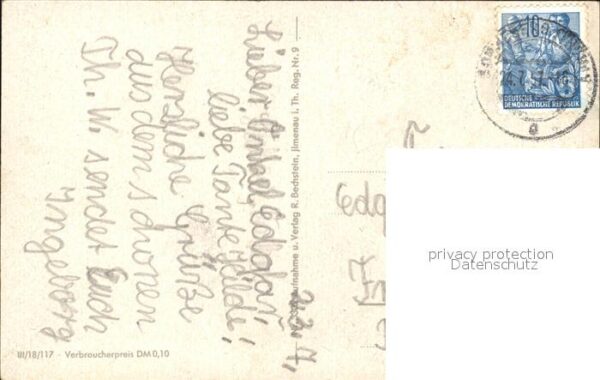 Lieber Onkel Edgar,
liebe Tante Hilde!
Herzliche Grüße
aus dem schönen
Th. W. sendet Euch
Ingeborg
23.7.
Aufnahme u. Verlag R. Bechstein, Jlmenau i. Th. Reg. Nr. 9
III/18/117 - Verbraucherpreis DM 0,10
10
DEUTSCHE
DEMOKRATISCHE REPUBLIK
a
Edg
privacy protection
Datenschutz